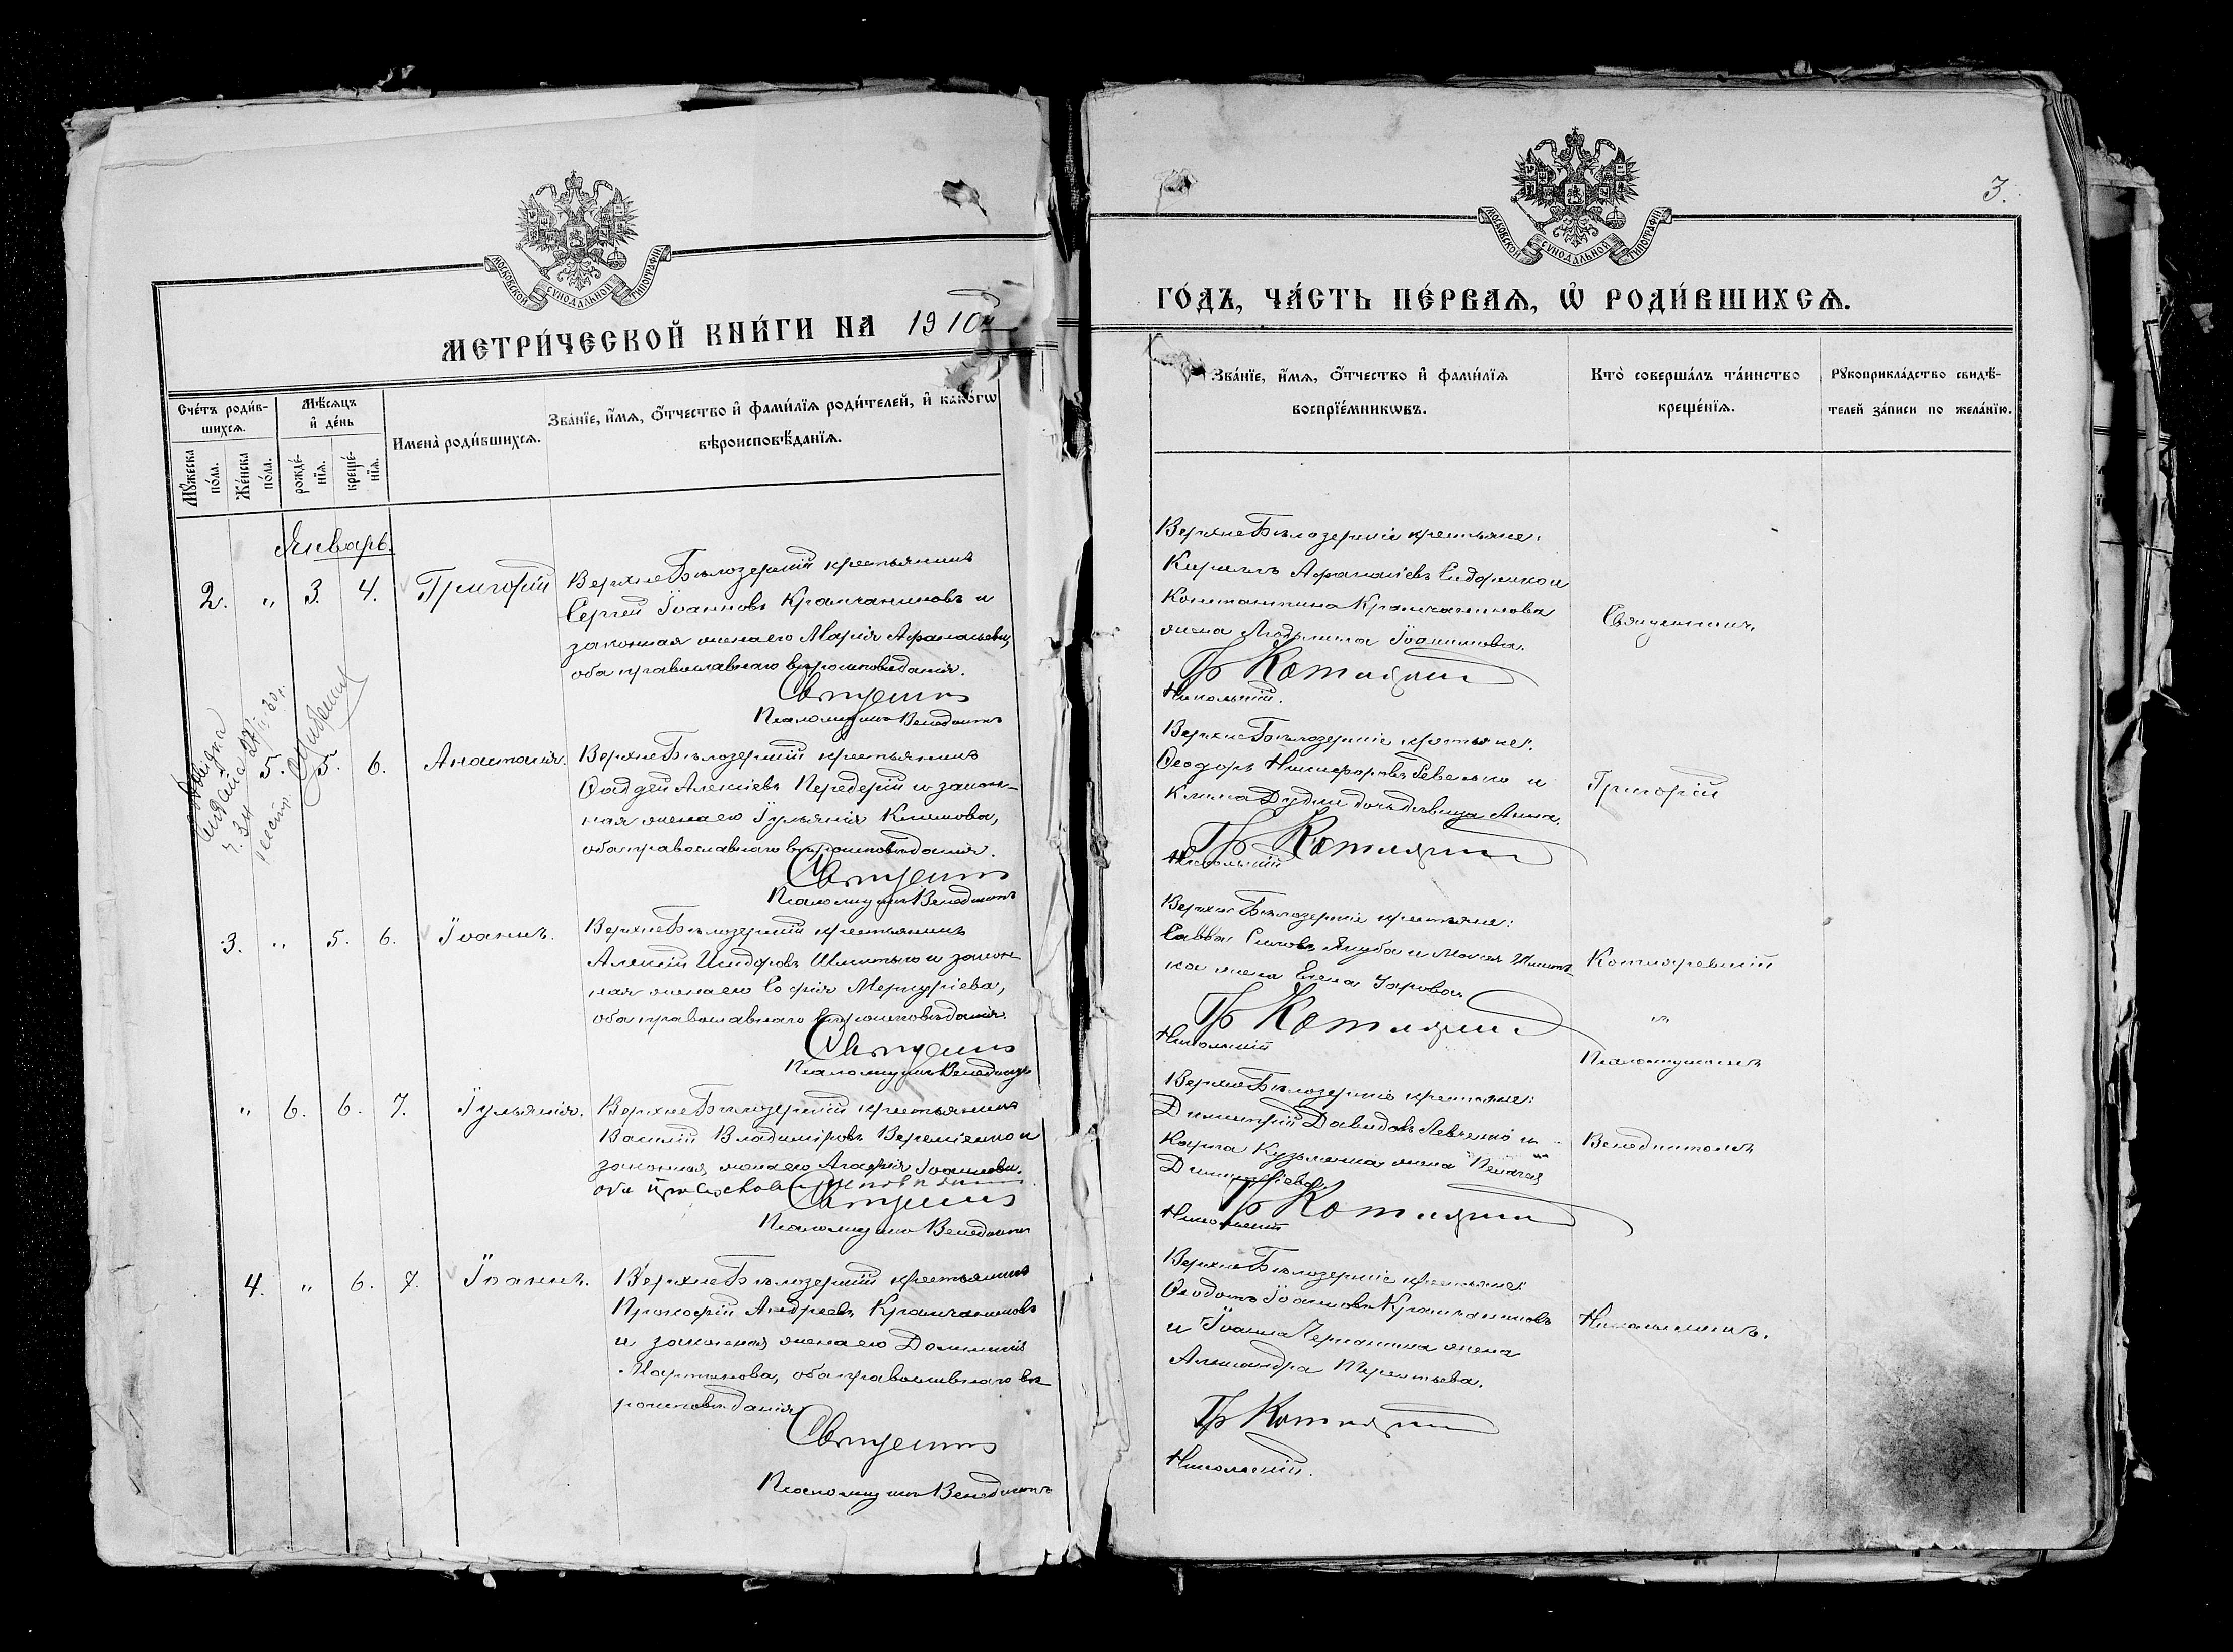 МОСКОВСКОЙ СѴНОДАЛЬНОЙ ТИПОГРАФІИ
МЕТРИ́ЧЕСКОЙ КНИ́ГИ НА 1910й
Сче́тъ роди́в-
шихсѧ.
Мѣ́сѧцъ
и҆ де́нь
Мꙋ́жеска
по́ла.
Же́нска
по́ла.
рожде́-
нїѧ.
креще́-
нїѧ.
Имена̀ роди́вшихсѧ.
Зва́нїе, и҆́мѧ, ѻ҆́тчество и҆ фами́лїѧ роди́телей, и҆ како́гѡ
вѣроисповѣ́данїѧ.
Январь.
2. " 3. 4. Григорій
Верхне Бѣлозерскій крестьянинъ
Сергій Іоанновъ Крамчаниновъ и
законная жена его Марія Афанасьева,
оба православнаго вѣроисповѣданія.
Священ
Псаломщикъ Венедиктъ
видана
5. 5. 6. Анастасія.
Верхне Бѣлозерскій крестьянинъ
Ѳаддей Алексіевъ Передерій и закон-
ная жена его Іульянія Климова,
оба православнаго вѣроисповѣданія.
Священ
Псаломщикъ Венедиктъ
3. " 5. 6. Іоаннъ.
Верхне Бѣлозерскій крестьянинъ
Алексій Исидоровъ и закон-
ная жена его Софія Меркуріева,
оба православнаго вѣроисповѣданія.
Священ
Псаломщикъ Венедиктъ
" 6. 6. 7. Іульянія.
Верхне Бѣлозерскій крестьянинъ
Василій Владиміровъ Веремѣенко и
законная жена его Агафія Іоаннова,
оба
Священ
Псаломщикъ Венедиктъ
4. " 6. 7. Іоаннъ.
Верхне Бѣлозерскій крестьянинъ
Прокофій Андреевъ Крамчаниновъ
и законная жена его Домникія
Мартинова, оба православнаго вѣ-
роисповѣданія
Священ
Псаломщикъ Венедиктъ
3.
МОСКОВСКОЙ СѴНОДАЛЬНОЙ ТИПОГРАФІИ
ГО́ДЪ, ЧА́СТЬ ПЕ́РВАѦ, Ѡ҆ РОДИ́ВШИХСѦ.
Зва́нїе, и҆́мѧ, ѻ҆́тчество и҆ фами́лїѧ
воспрїе́мникѡвъ.
Кто̀ соверша́лъ та́инство
креще́нїѧ.
Рꙋкоприкла́дство свидѣ́-
телей за́писи по жела́нїю.
Верхне Бѣлозерскіе крестьяне:
Кириллъ Афанасіевъ Сидоренко и
Константина Крамчанинова
жена Людмила Іоаннова.
Гр Котляр
Никольскій.
Священникъ
Верхне Бѣлозерскіе крестьяне:
Ѳеодоръ Никифоровъ Ревенко и
Клима Дудки дочь дѣвица Анна.
Гр Котляр
Никольскій
Григорій
Верхне Бѣлозерскіе крестьяне:
Савва Якуба и Моисея
ка жена Елена
Гр Котляр
Никольскій
Котляревскій
"
Псаломщикомъ
Верхне Бѣлозерскіе крестьяне:
Димитрій Давидовъ Левченко и
Карпа Кузьменка жена Пелагія
Димитріева.
Гр Котляр
Никольскій
Венедиктомъ
Верхне Бѣлозерскіе крестьяне:
Ѳеодотъ Іоанновъ Крамчаниновъ
и Іоанна жена
Александра Терентьева.
Гр Котляр
Никольскій.
Никольскимъ.